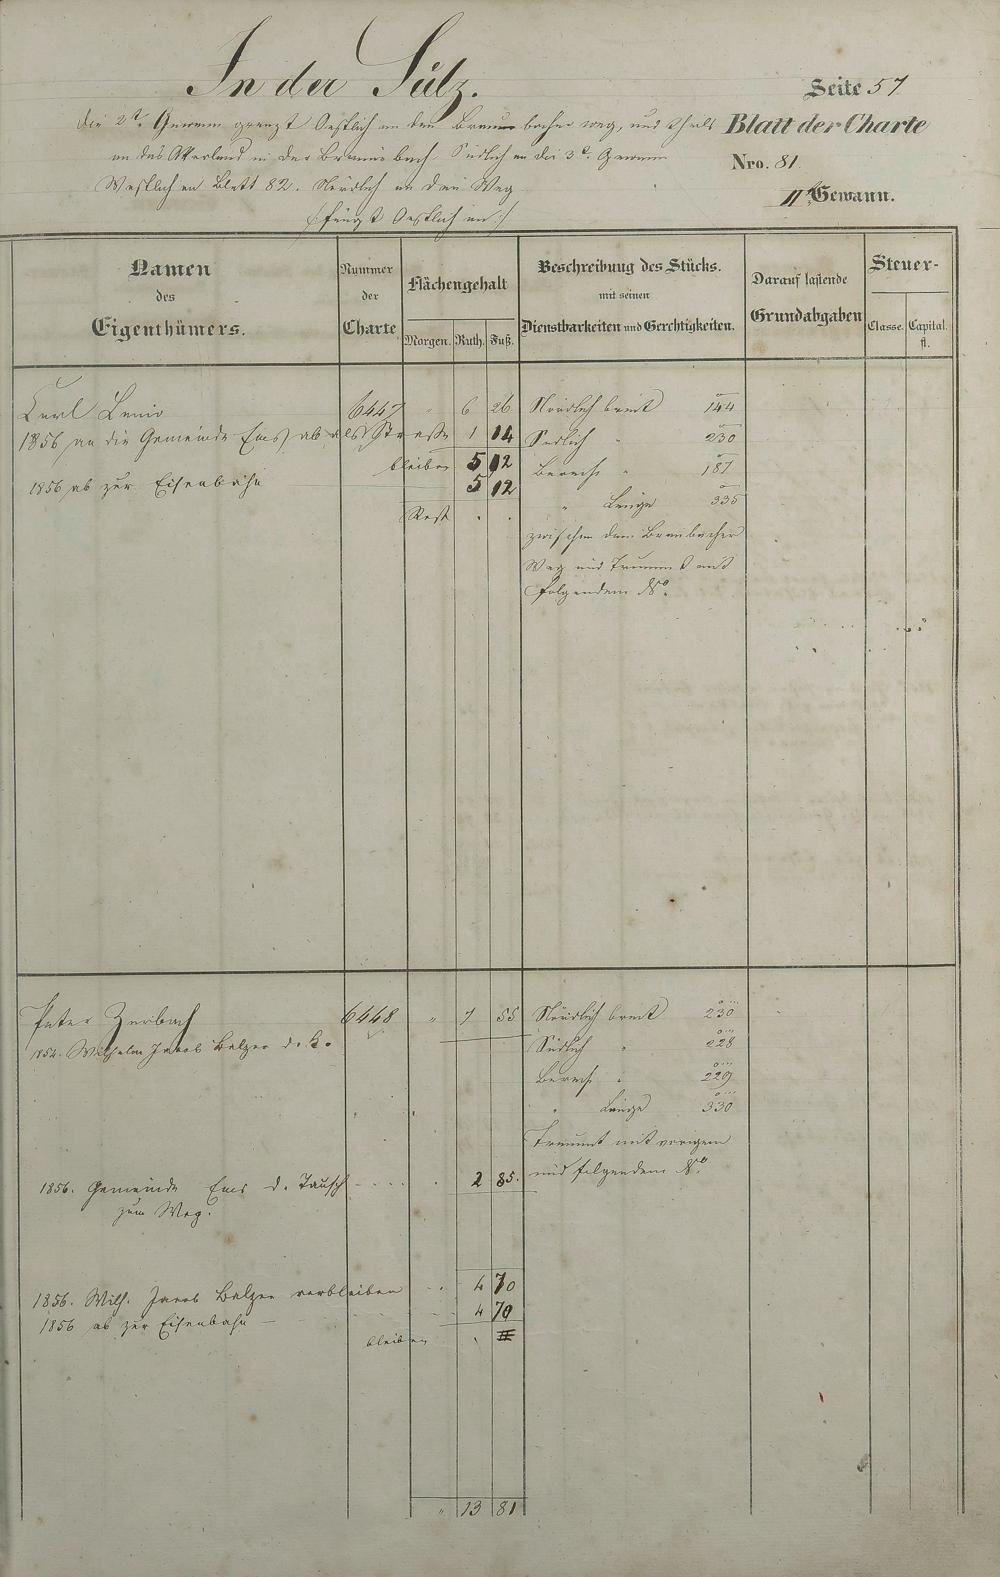 In der Sülz.
Seite 57
die 2te Gewann grenzt Oestlich an den Braunbacher weg, und theils
Blatt der Charte
an das Ackerland in der Braunbach Südlich an die 3te Gewann
Nro. 81
Westlich an Blatt 82. Nördlich an den Weg
IIte Gewann.
(fängt Oestlich an:/
Namen
des
Eigenthümers.
Nummer
der
Charte
Flächengehalt
Morgen. Ruth. Fuß.
Beschreibung des Stücks.
mit seinen
Dienstbarkeiten und Gerechtigkeiten.
Darauf lastende
Grundabgaben
Steuer-
Classe. Capital.
fl.
Carl 6447 " 6 26 Nördlich breit 144
1856 an die Gemeinde Ems ab als Straße 1 14 Südlich " 230
bleiben 5 12 Berech " 187
1856 ab zur Eisenbahn 5 12
Rest . . " Länge 335
zwischen dem Braunbacher
Weg und mit
folgendem No.
Peter Zerbach 6448 " 7 55 Nördlich breit 230
1852. Wilhelm Jacob Balzer d. K. Südlich " 228
Berech " 229
" Länge 330
mit vorigem
und folgendem No.
1856. Gemeinde Ems d. Tausch 2 85.
zum Weg.
1856. Wilh. Jacob Balzer verbleiben 4 70
1856 ab zur Eisenbahn — 4 70
bleiben
" 13 81